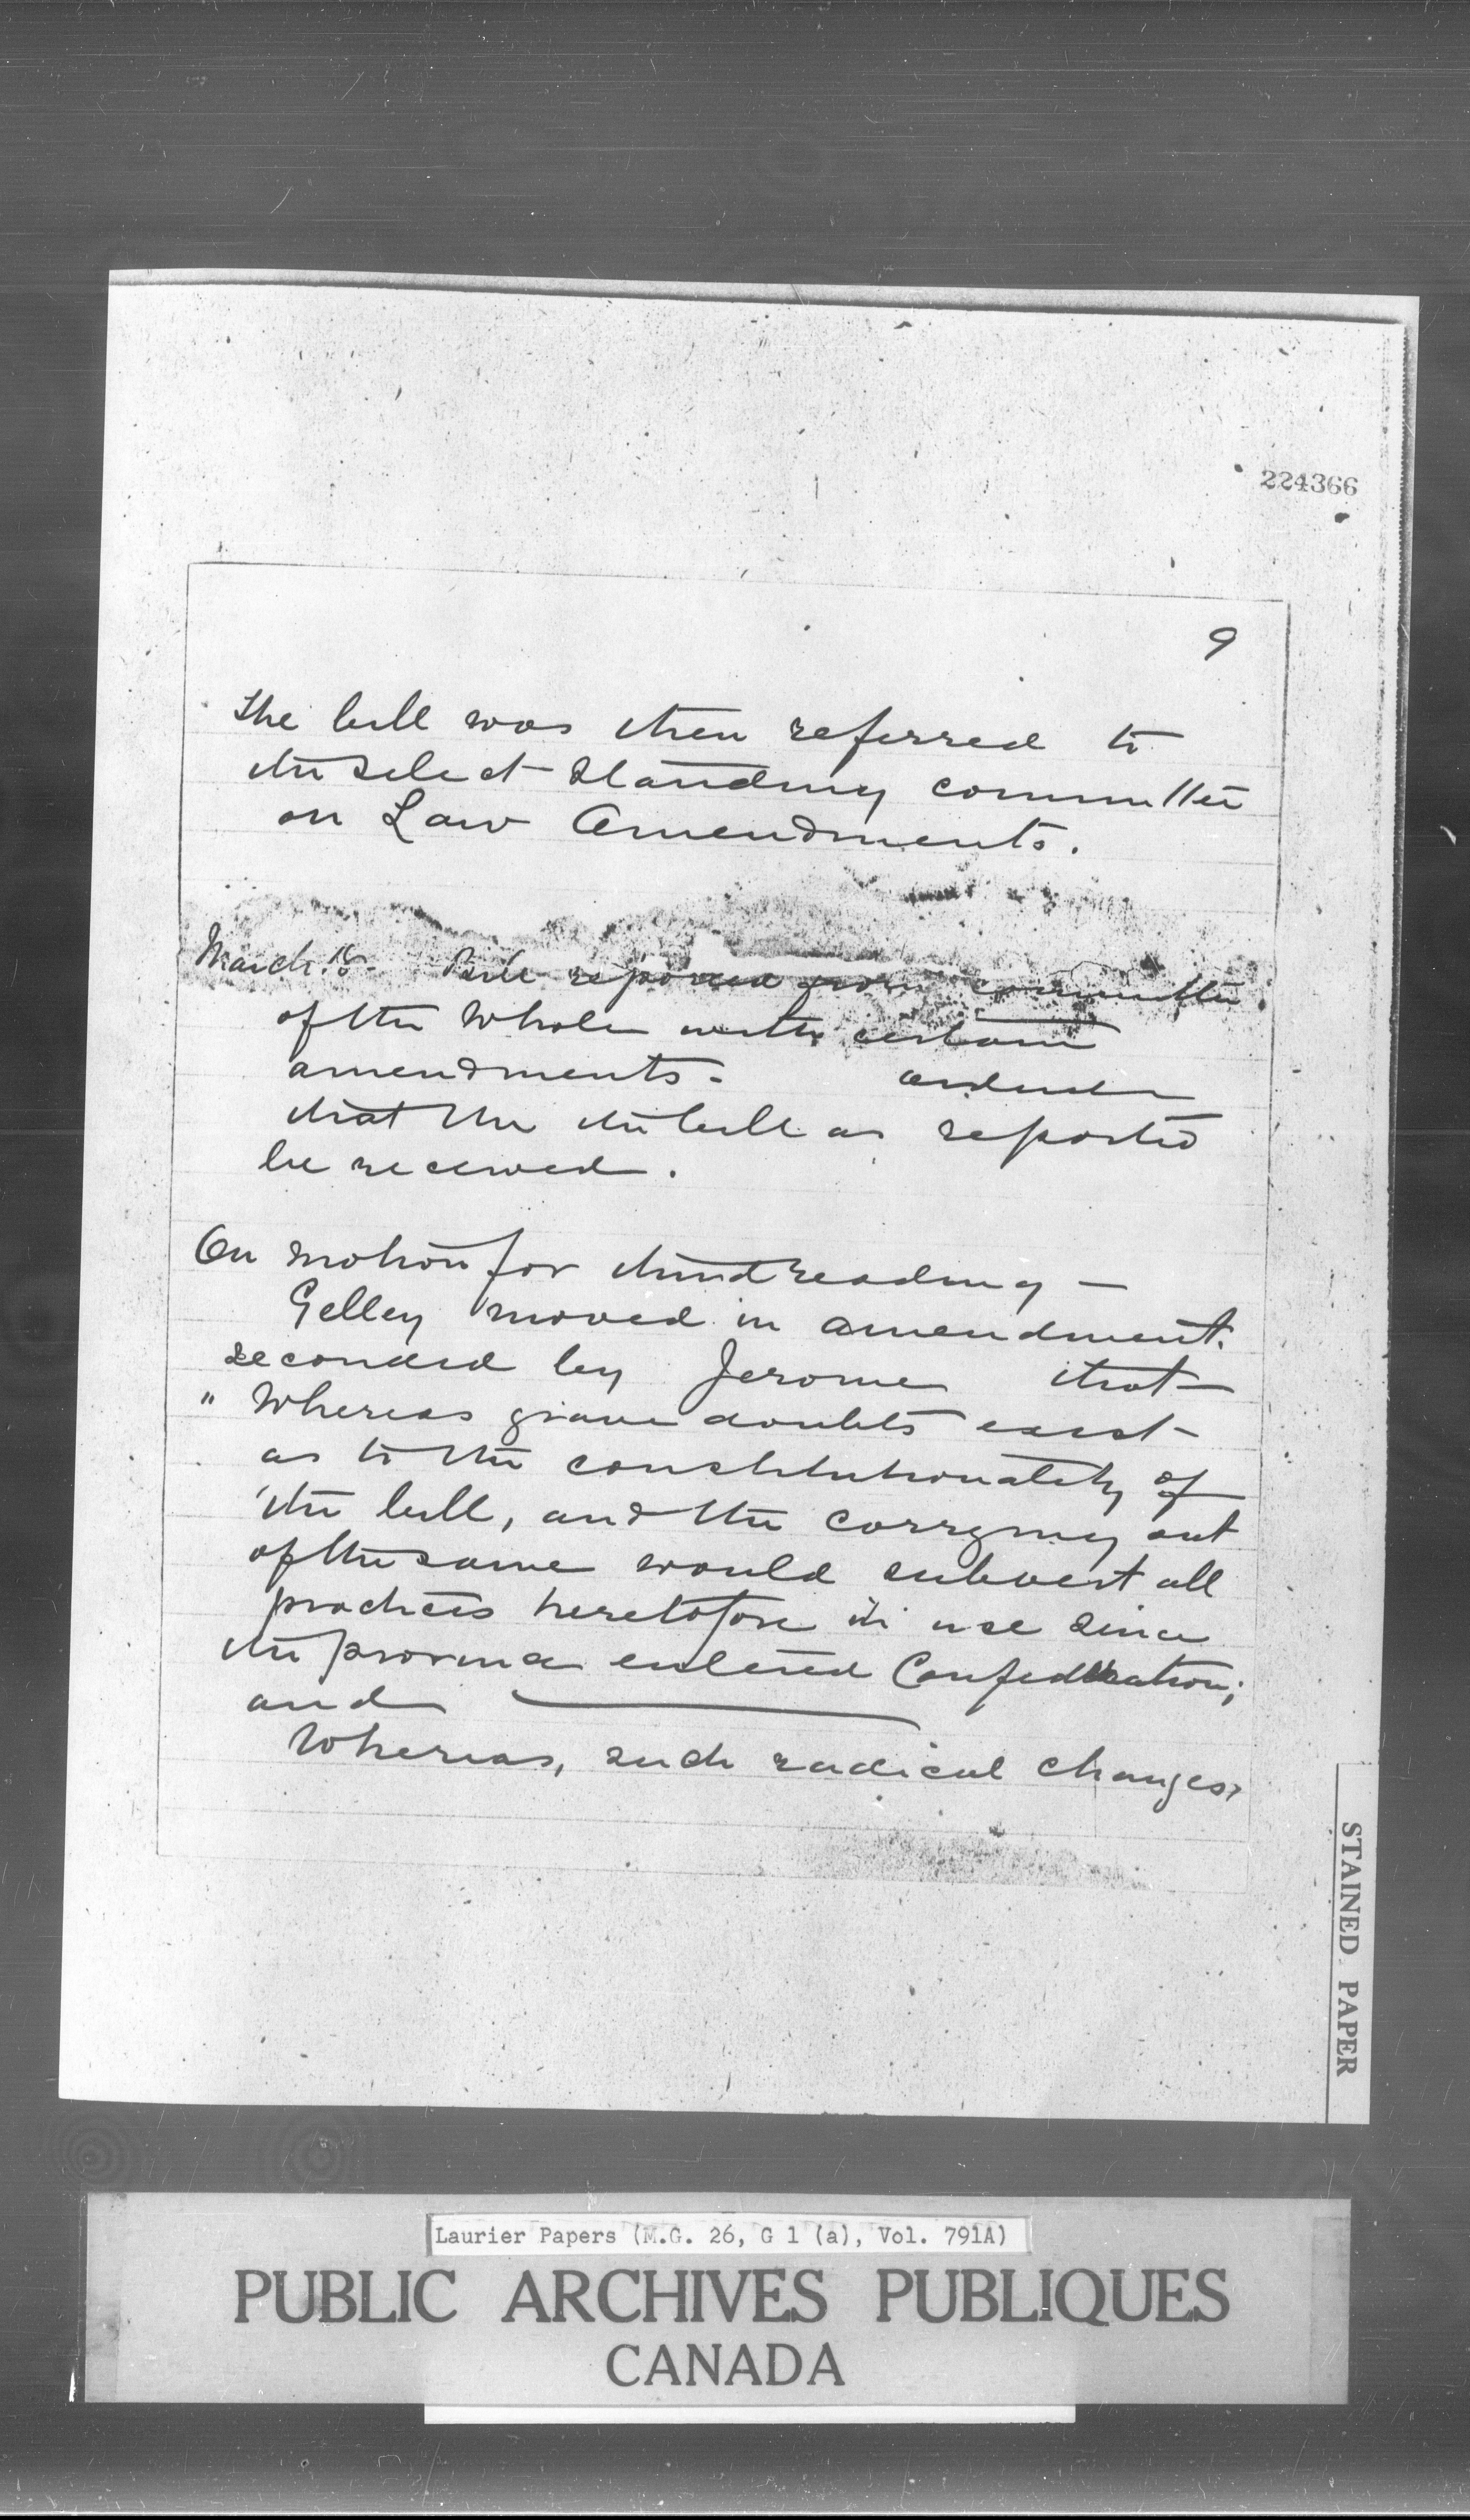 224366
9
The bill was then referred to
the select standing committee
on Law Amendments.
March 18. Bill reported from committee
of the Whole with certain
amendments. ordered
that the the bill as reported
be received.
On motion for third reading —
Gelley moved in amendment.
seconded by Jerome that
" Whereas grave doubts exist
as to the constitutionality of
the bill, and the carrying out
of the same would subvert all
practices heretofore in use since
the province entered Confederation;
and
Whereas, such radical changes,
STAINED PAPER
Laurier Papers (M.G. 26, G 1 (a), Vol. 791A)
PUBLIC ARCHIVES PUBLIQUES
CANADA